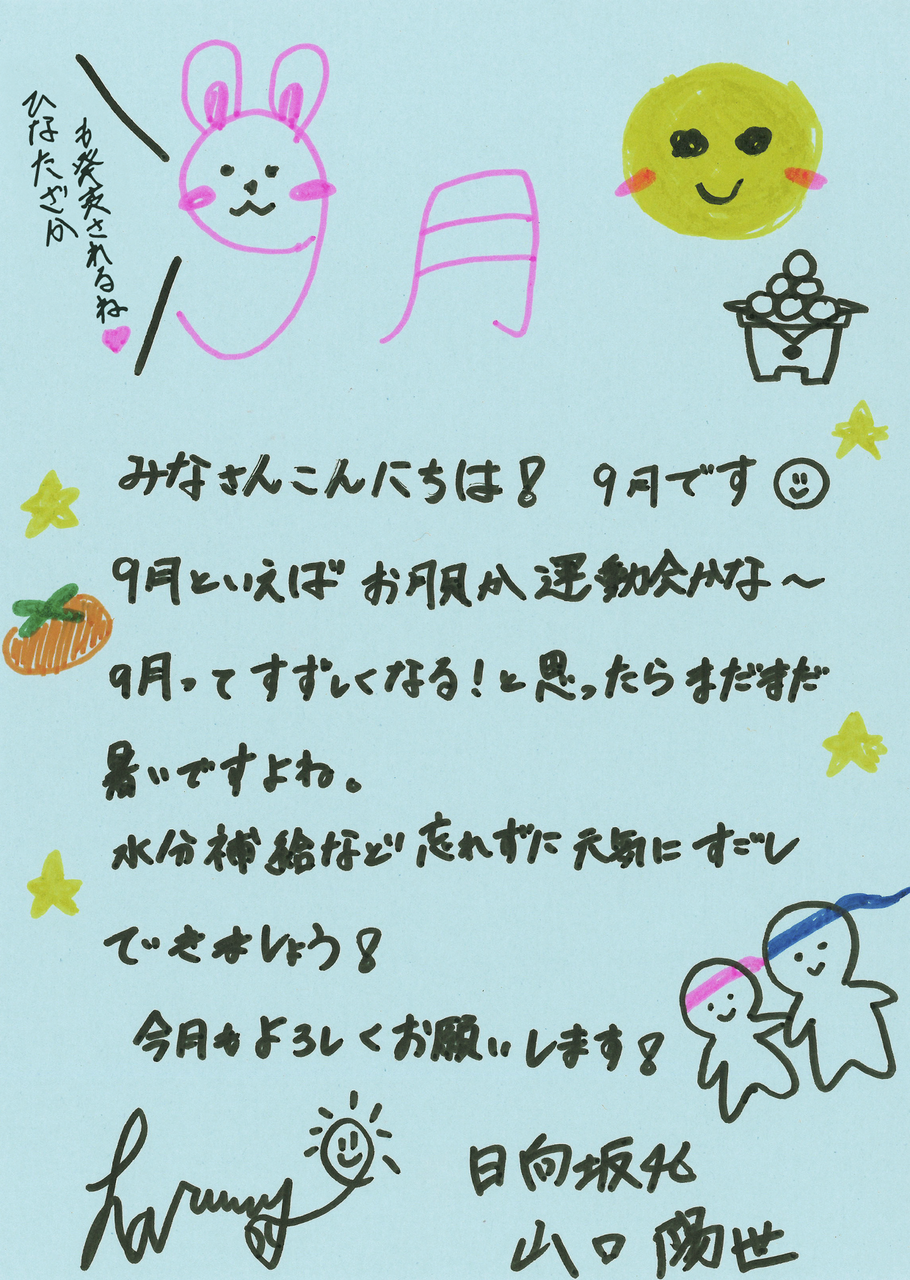 9月
ひなたざか
も されるね
みなさんこんにちは! 9月です
9月といえば お月見か 運動会かな～
9月って すずしくなる!と思ったらまだまだ
暑いですよね。
水分補給など 忘れずに元気に すごし
できましょう!
今月もよろしくお願いします!
日向坂46
山口 陽世